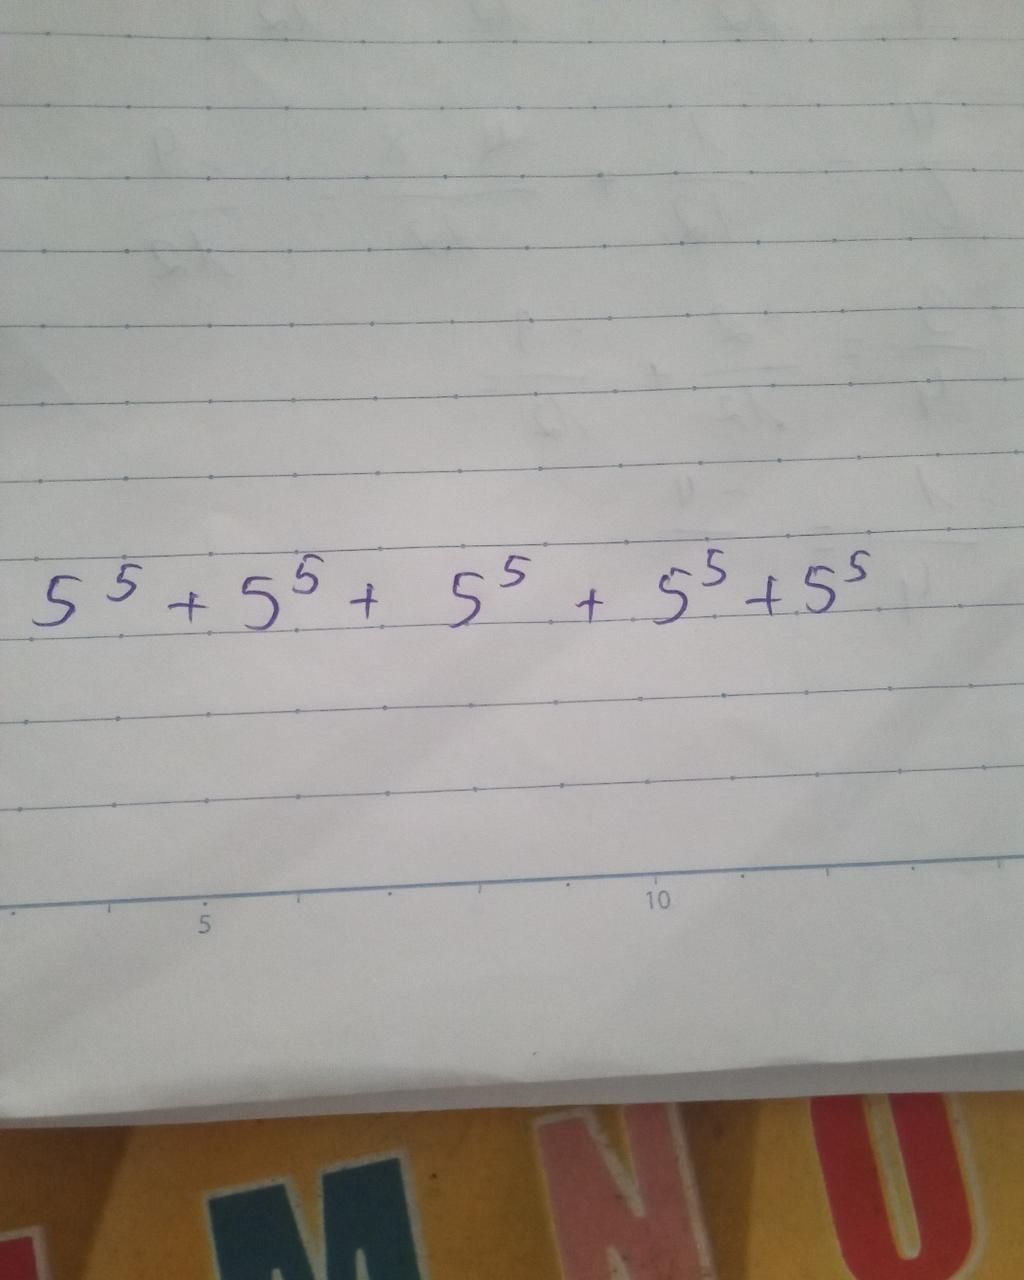 5⁵ + 5⁵ + 5⁵ + 5⁵ + 5⁵
5 10
M N U